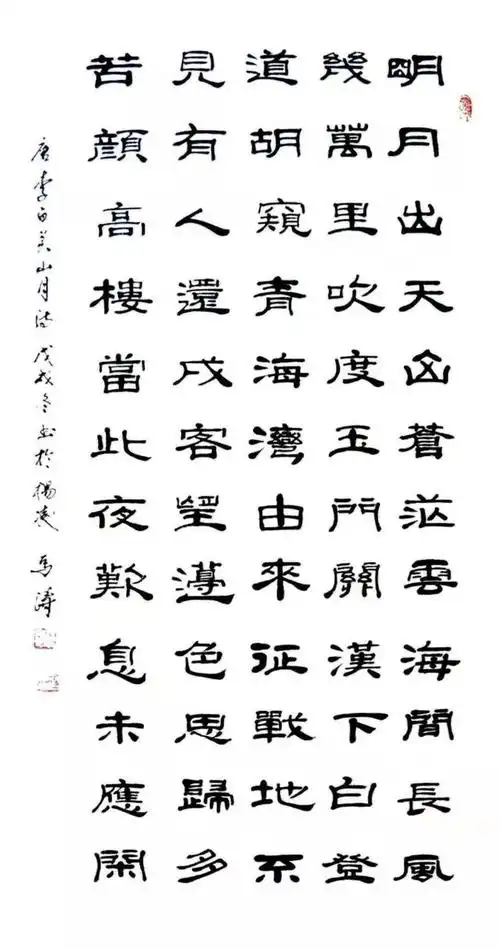 明月出天山蒼茫雲海間長風
幾萬里吹度玉門關漢下白登
道胡窺青海灣由來征戰地不
見有人還戍客望邊色思歸多
苦顏高樓當此夜歎息未應閑
唐李白关山月诗戊戌冬书於楊凌 馬濤